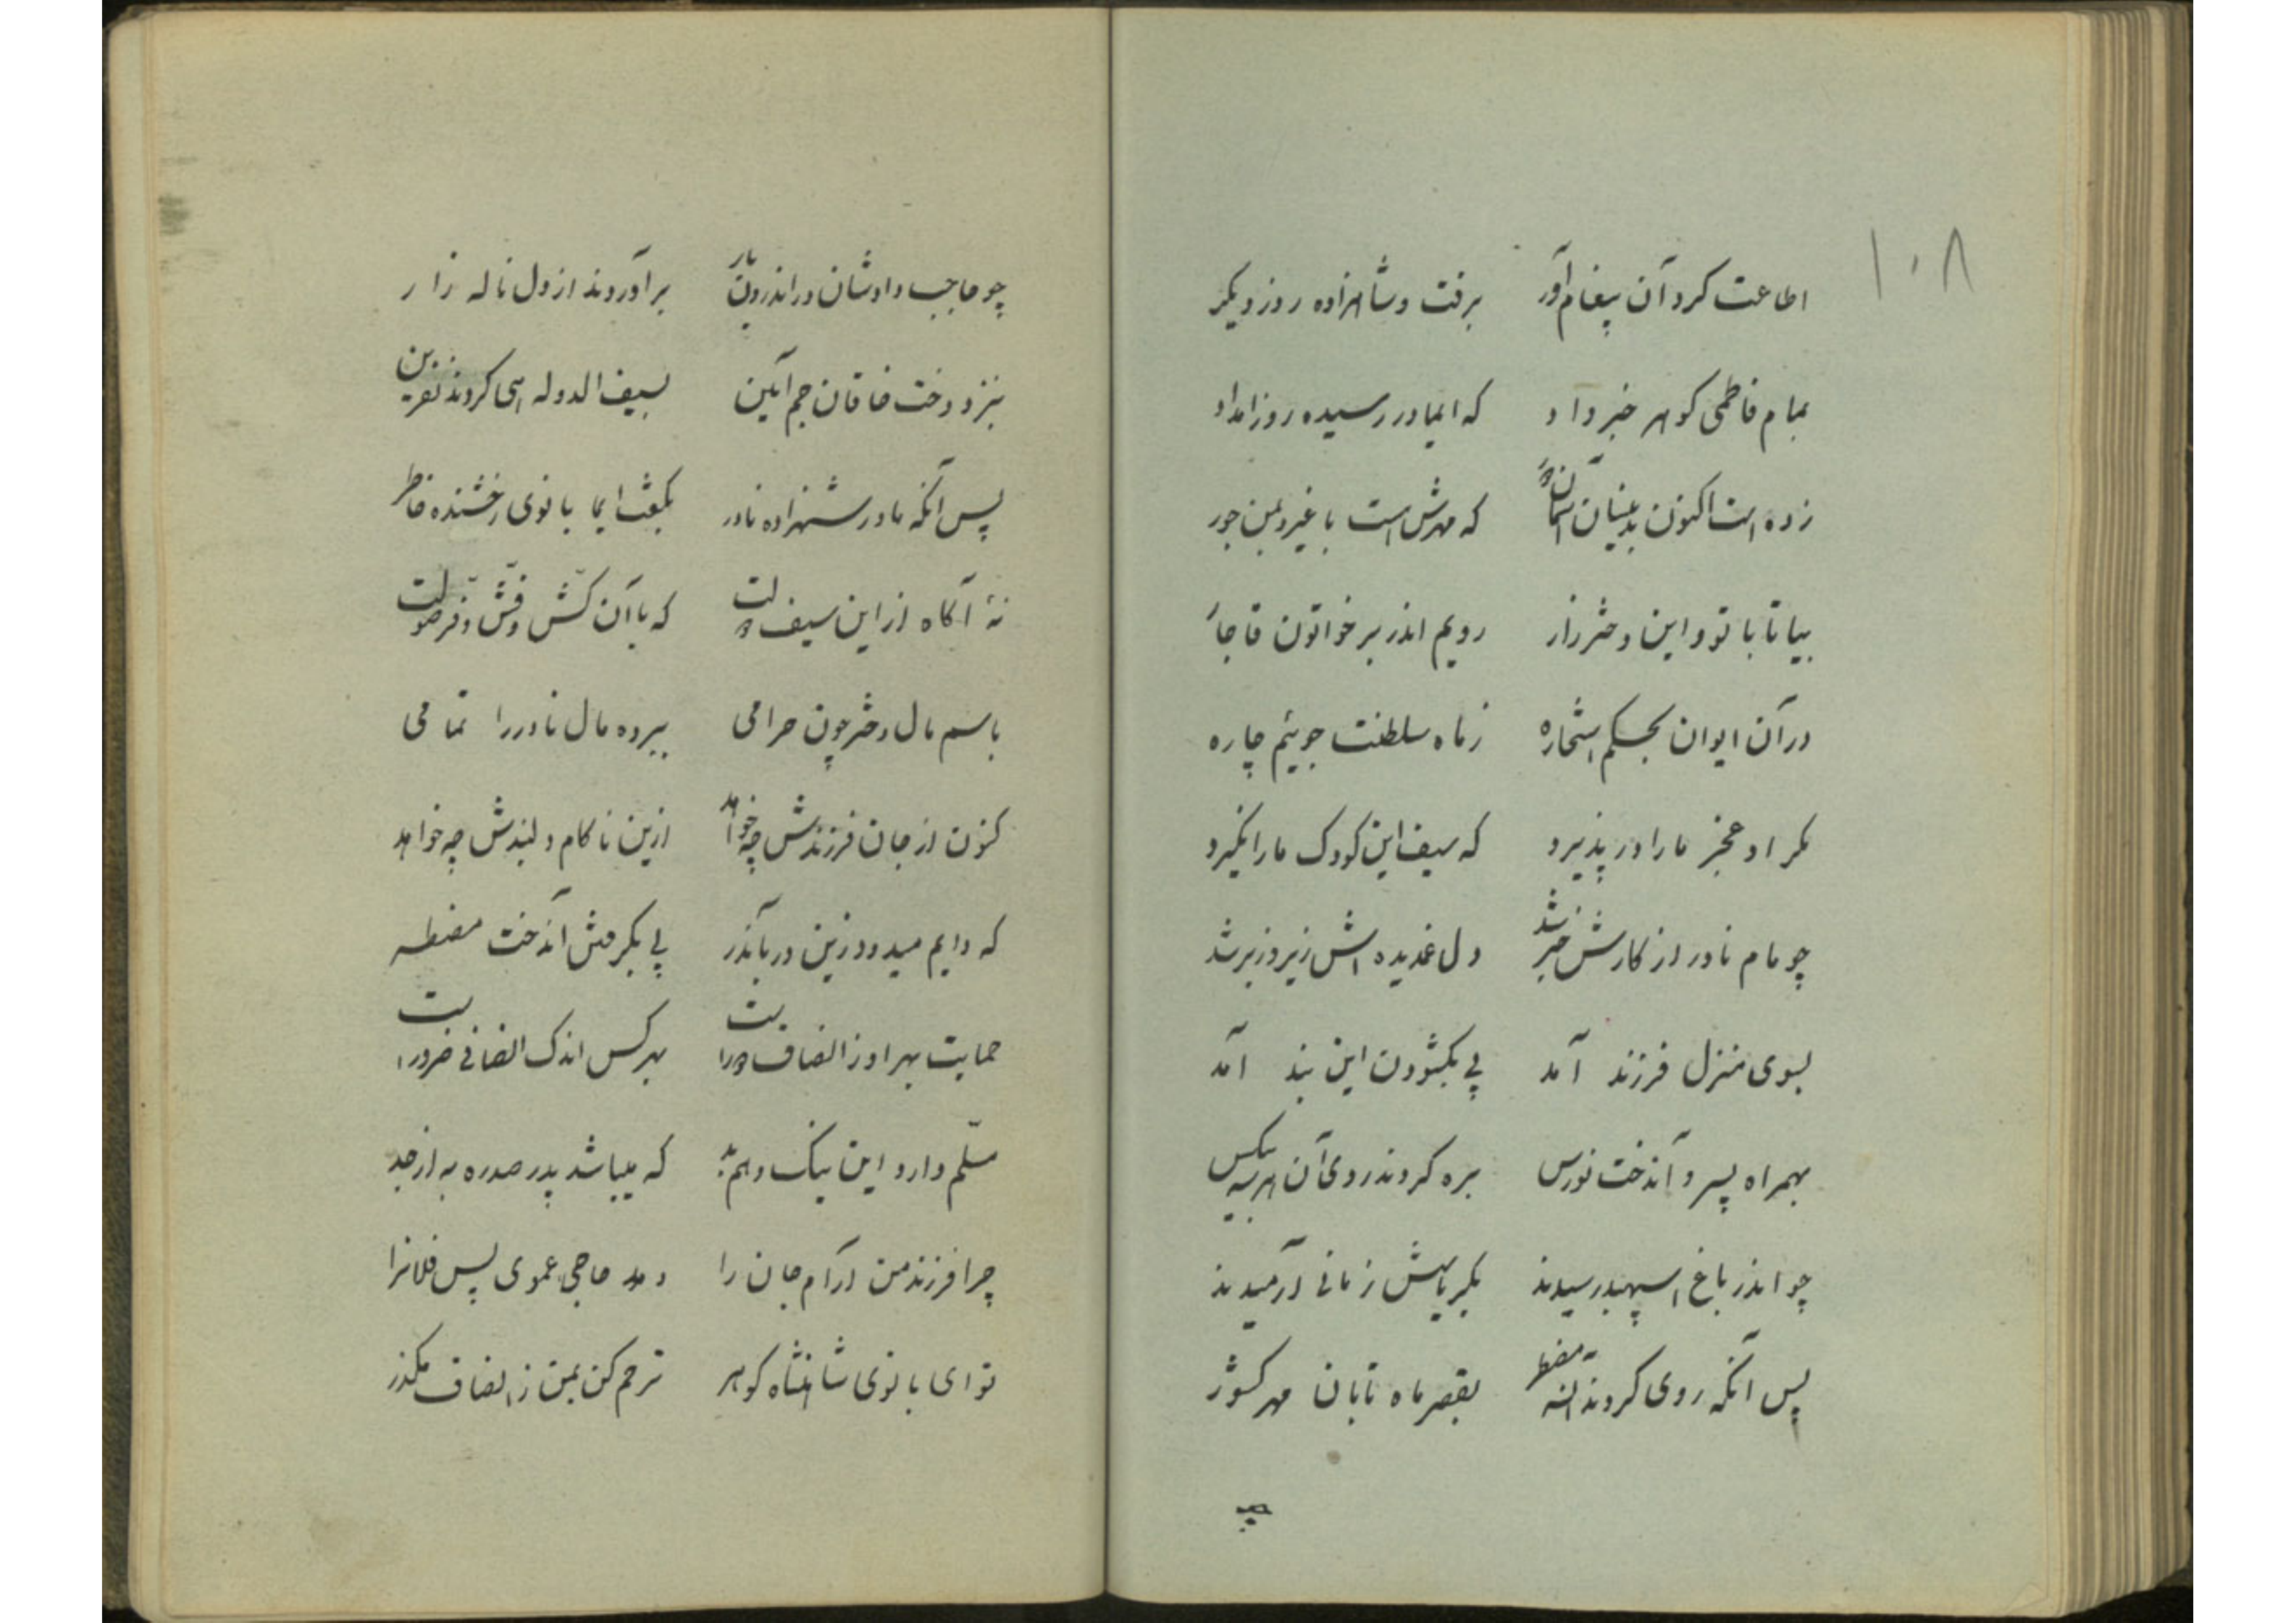 ۱۰۸
اطاعت کرد آن پیغام‌آور برفت و شاهزاده روز دیگر
بمام فاطمی گوهر خبر داد که ایمادر رسیده روز امداد
زده است اکنون بدینسان که مهرش است با غیر و بمن جور
بیا تا با تو و این دختر زار رویم اندر بر خواتون قاجار
در آن ایوان بحکم استخاره ز ماه سلطنت جوئیم چاره
مگر او عجز ما را در پذیرد که سیف این کودک ما را نگیرد
چو مام نادر از کارش خبر شد دل غمدیده اش زیر و زبر شد
بسوی منزل فرزند آمد پی بگشودن این بند آمد
بهمراه پسر و آندخت نورس بره کردند روی آن هر سه بیکس
چو اندر باغ اسپهبد رسیدند بگریاسش زمانی آرمیدند
پس آنگه روی کردند آنسه مضطر بقصر ماه تابان مهر کشور
چو حاجب دادشان در اندرون بار برآوردند از دل ناله زار
بنزد دخت خاقان جم آئین بسیف الدوله هی کردند نفرین
پس آنگه مادر شهزاده نادر بگفت ایا بانوی رخشنده خاطر
نهٔ آگاه از این سیف دولت که با آن کش و فش و فر صولت
باسم مال دختر چون حرامی ببرده مال نادر را تمامی
کنون از جان فرزندش چه خواهد ازین ناکام دلبندش چه خواهد
که دایم میدود زین در بآندر پی بگرفتن آندخت مضطر
حمایت بهر او ز انصاف دور است بهر کس اندک انصافی ضرور است
مسلم دارد این نیک و هم بد که میباشد پدر صدره به از جد
چرا فرزند من آرام جان را دهد حاجی عموی پس فلانرا
تو ای بانوی شاهنشاه گوهر ترحم کن بمن ز انصاف مگذر